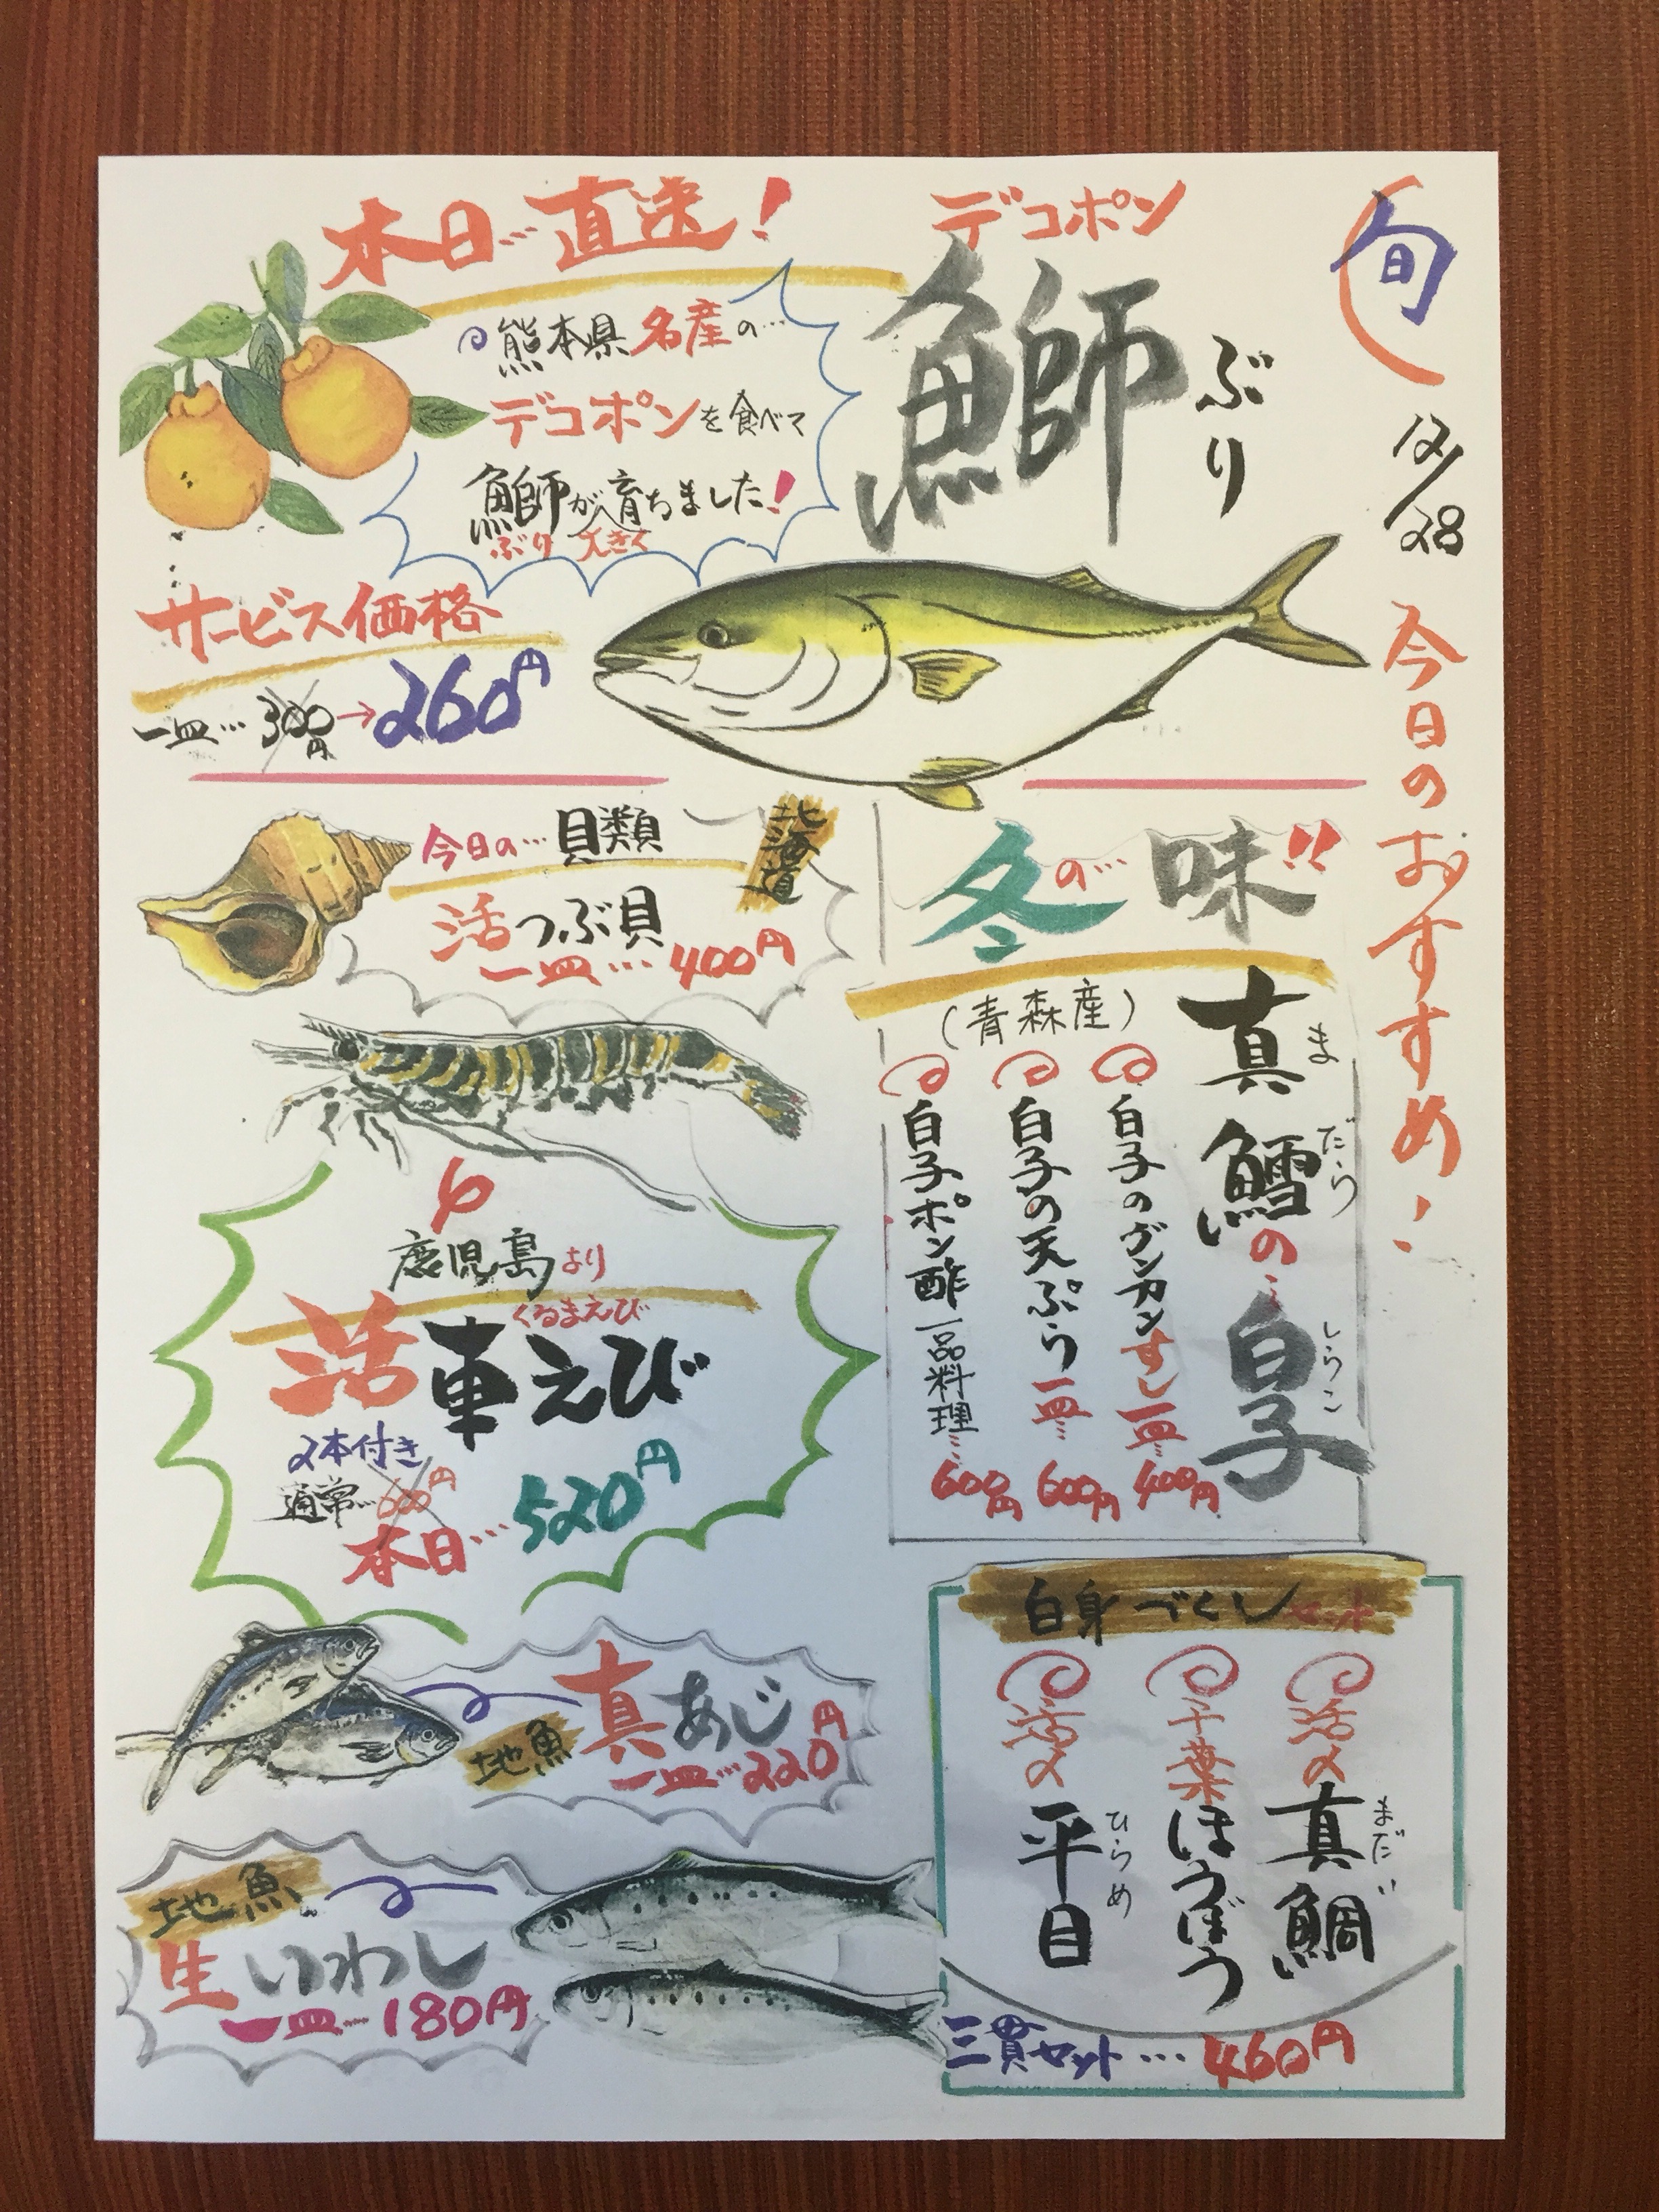 旬
12/28
今日のおすすめ!
デコポン
鰤
ぶり
本日…直送!
熊本県名産の…
デコポンを食べて
鰤が育ちました!
ぶり 大きく
サービス価格
一皿…300円→260円
今日の…貝類
北海道
活つぶ貝
一皿…400円
鹿児島より
くるまえび
活車えび
2本付き
通常…600円
本日…520円
地魚
真あじ
一皿…220円
地魚
生いわし
一皿…180円
冬の…味!!
真鱈の…白子
まだら
しらこ
(青森産)
白子のグンカンすし一皿…400円
白子の天ぷら一皿…600円
白子ポン酢一品料理…600円
白身づくしセット
活〆真鯛
まだい
千葉ほうぼう
活〆平目
ひらめ
三貫セット…460円